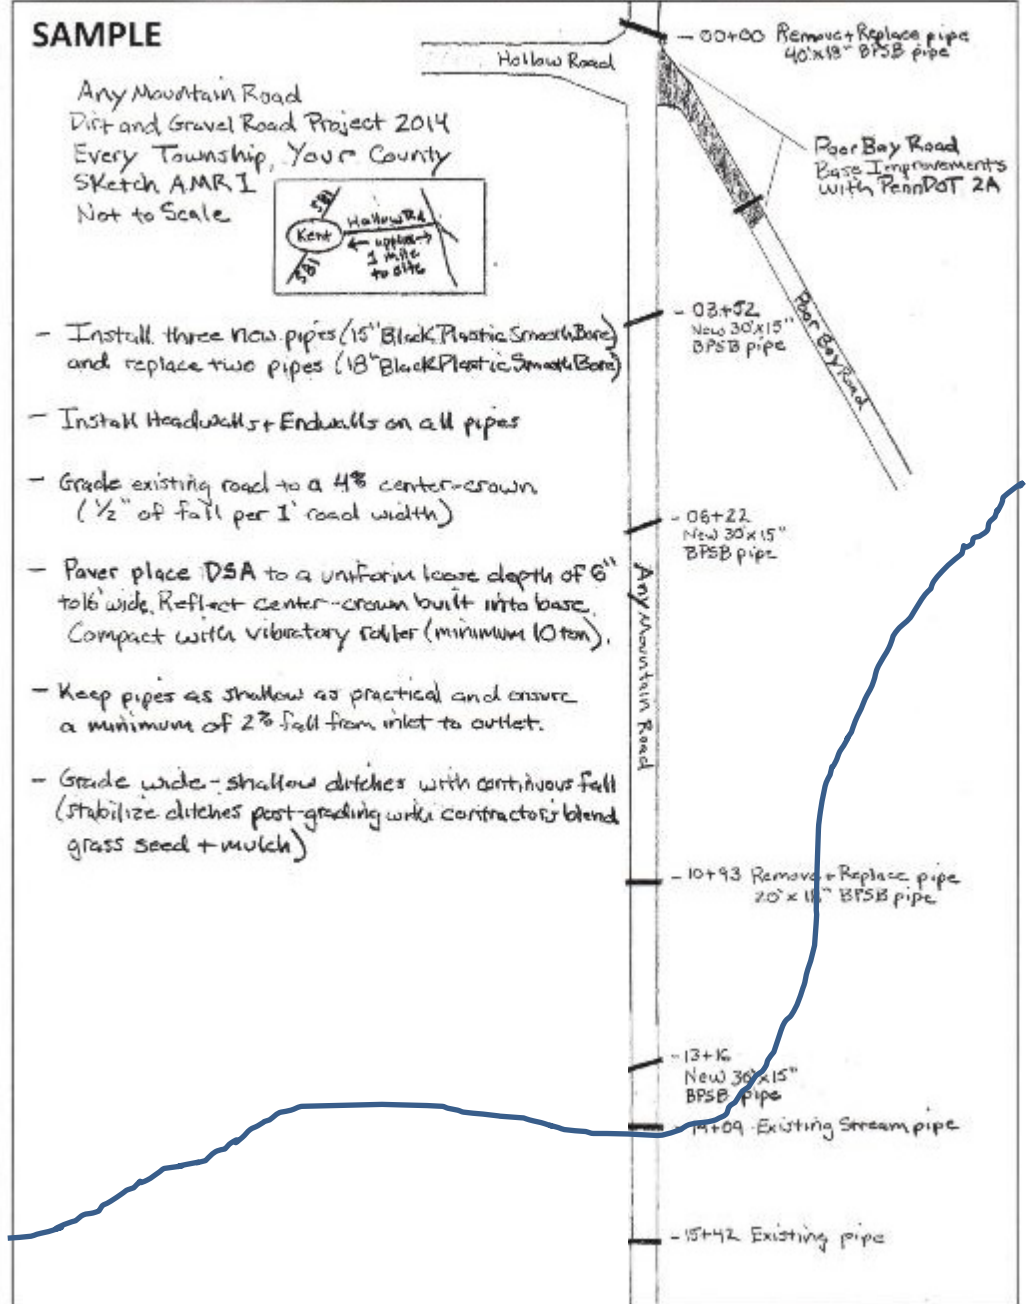 SAMPLE
Any Mountain Road
Dirt and Gravel Road Project 2014
Every Township, Your County
Sketch AMR 1
Not to Scale
581
Kent
Hollow Rd
approx
1 mile
to site
581
- Install three new pipes (15" Black Plastic Smooth Bore)
and replace two pipes (18" Black Plastic Smooth Bore)
- Install Headwalls + Endwalls on all pipes
- Grade existing road to a 4% center-crown
(1/2" of fall per 1' road width)
- Paver place DSA to a uniform loose depth of 6"
to 16' wide. Reflect center-crown built into base.
Compact with vibratory roller (minimum 10 ton).
- Keep pipes as shallow as practical and ensure
a minimum of 2% fall from inlet to outlet.
- Grade wide-shallow ditches with continuous fall
(stabilize ditches post-grading with contractor's blend
grass seed + mulch)
Hollow Road
- 00+00 Remove + Replace pipe
40'x18" BPSB pipe
Poor Boy Road
Base Improvements
with PennDOT 2A
Poor Boy Road
- 03+52
New 30'x15"
BPSB pipe
- 06+22
New 30'x15"
BPSB pipe
Any Mountain Road
- 10+93 Remove + Replace pipe
20'x18" BPSB pipe
- 13+16
New 30'x15"
BPSB pipe
- 14+09 Existing Stream pipe
- 15+42 Existing pipe